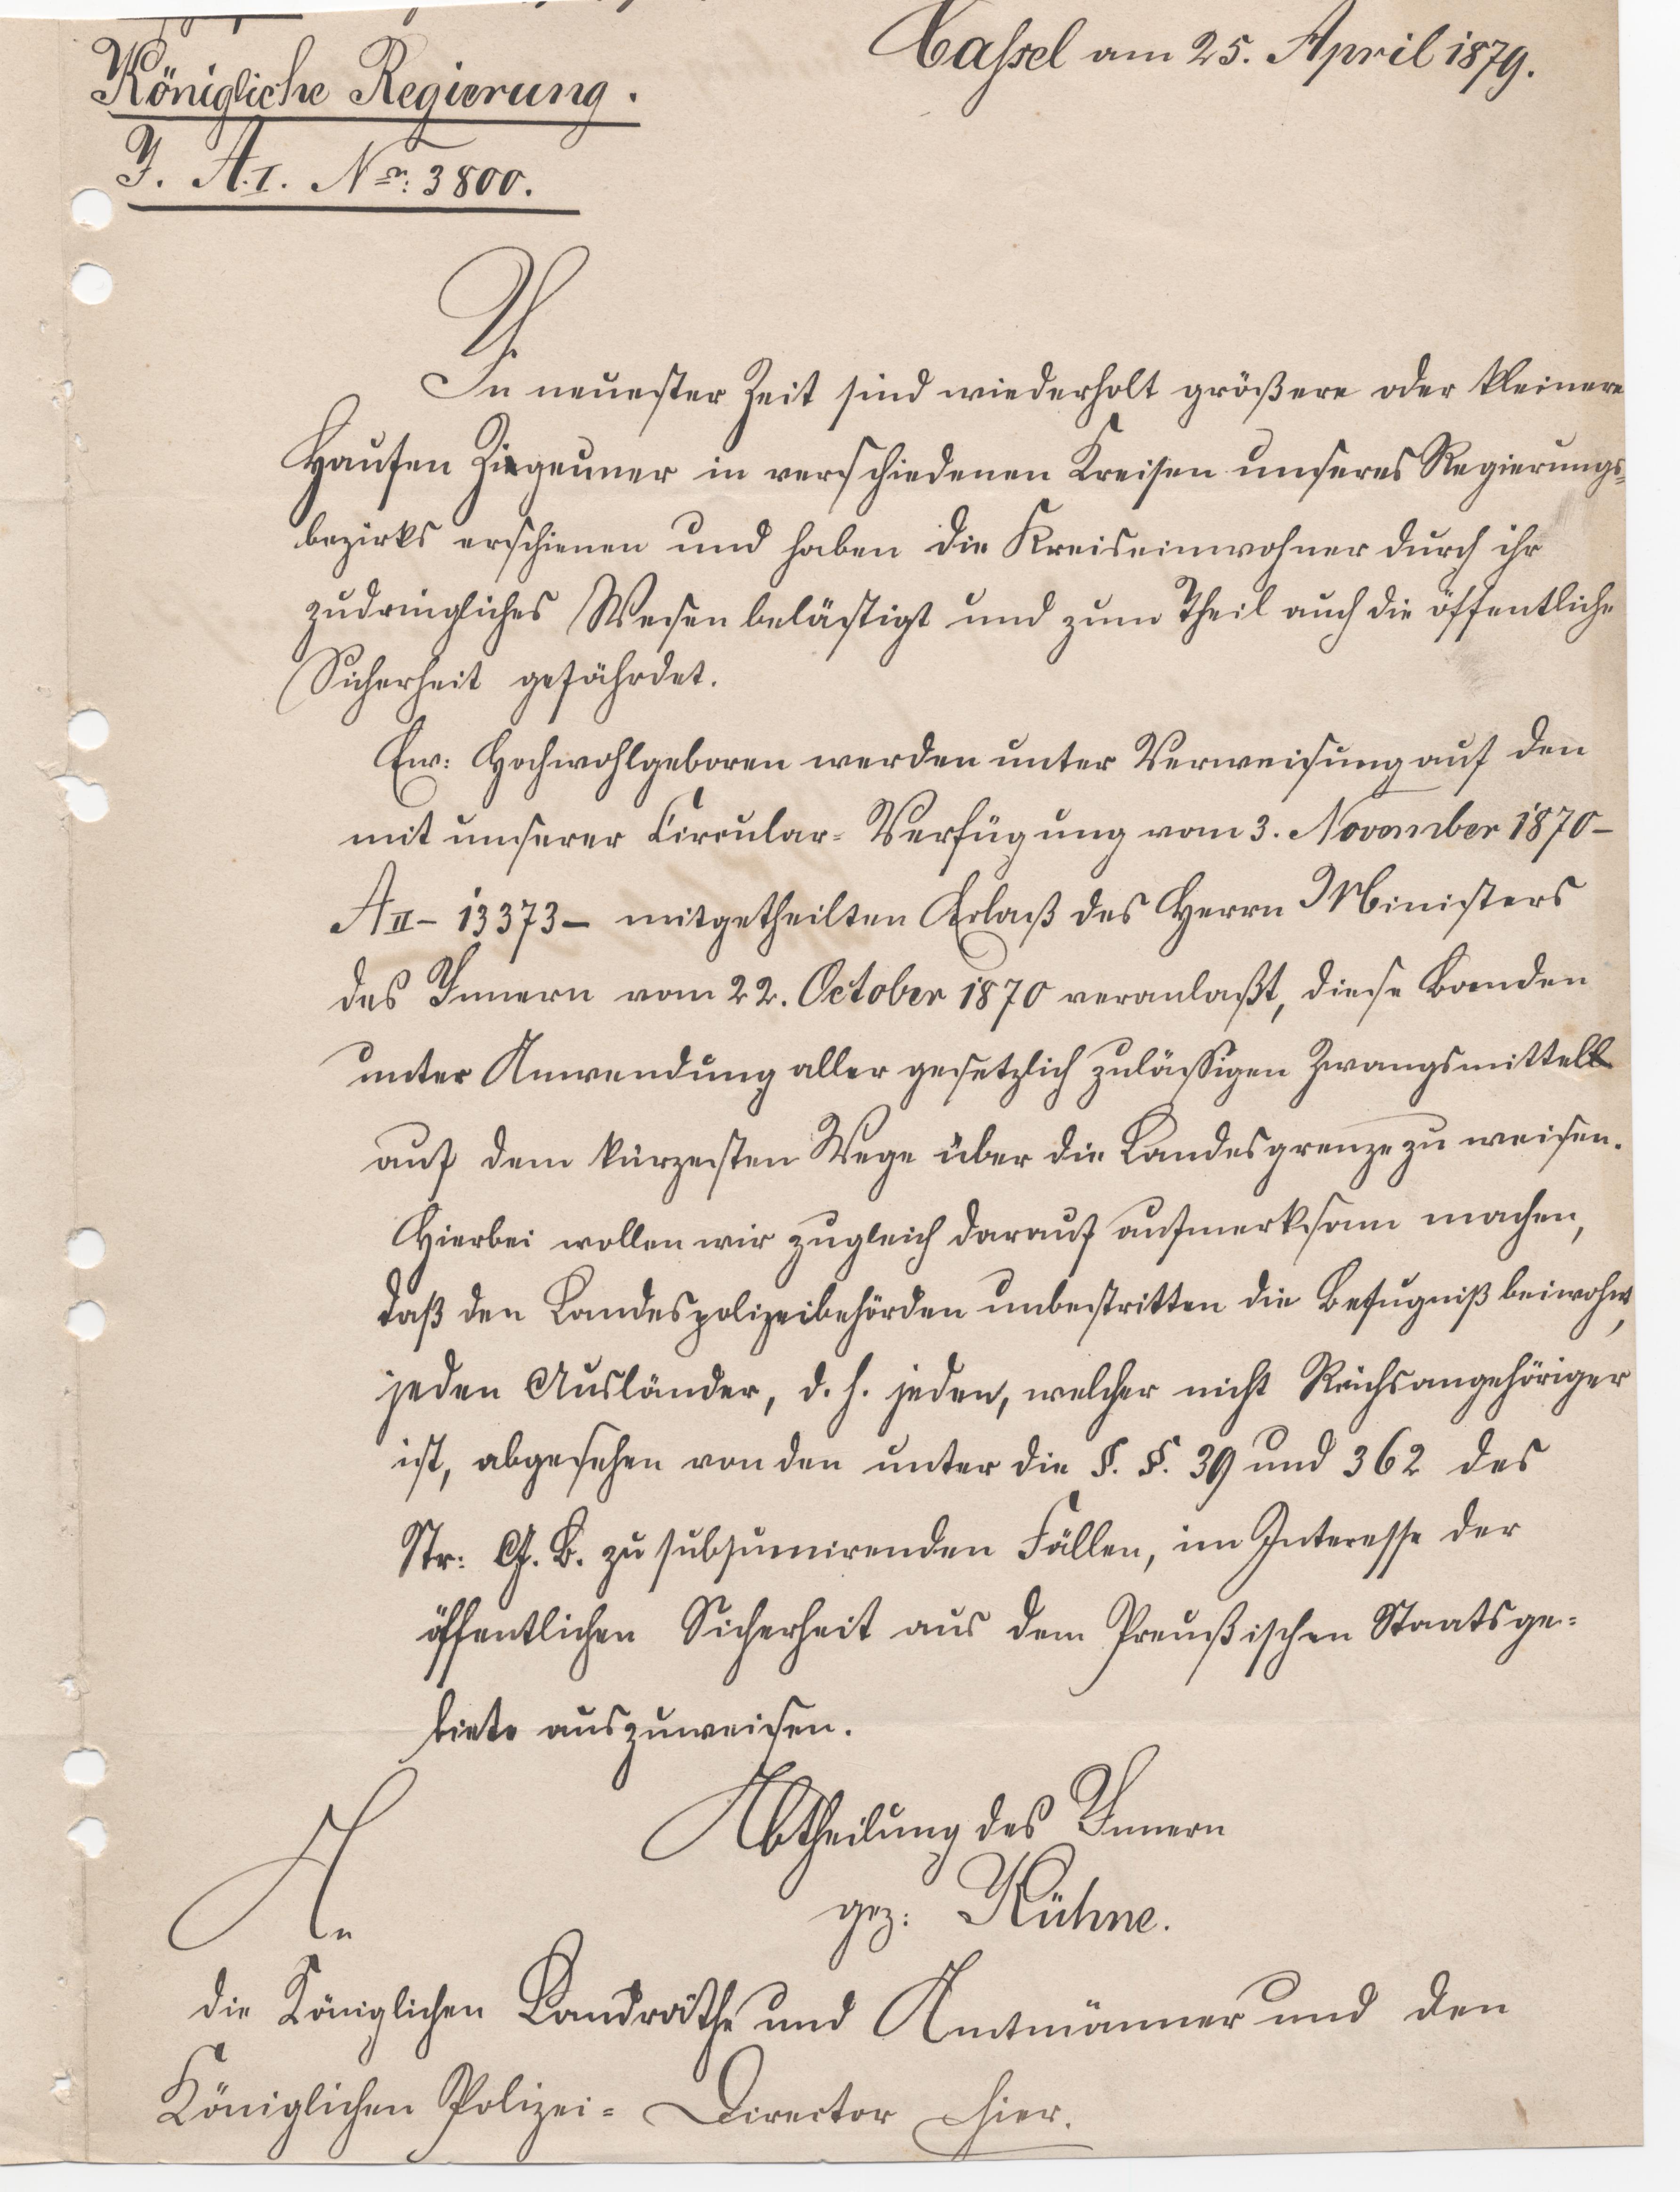 Königliche Regierung.
Cassel am 25. April 1879.
J. A.I. Nr: 3800.
In neuester Zeit sind wiederholt größere oder kleinere
Haufen Zigeuner in verschiedenen Kreisen unseres Regierungs-
bezirks erschienen und haben die Kreiseinwohner durch ihr
zudringliches Wesen belästigt und zum Theil auch die öffentliche
Sicherheit gefährdet.
Ew: Hochwohlgeboren werden unter Verweisung auf den
mit unserer Circular- Verfügung vom 3. November 1870-
A II- 13373- mitgetheilten Erlaß des Herrn Ministers
des Innern vom 22. October 1870 veranlaßt, diese Banden
unter Anwendung aller gesetzlich zulässigen Zwangsmittel
auf dem kürzesten Wege über die Landesgrenze zu weisen.
Hierbei wollen wir zugleich darauf aufmerksam machen,
daß den Landespolizeibehörden unbestritten die Befugniß beiwohnt,
jeden Ausländer, d. h. jeden, welcher nicht Reichsangehöriger
ist, abgesehen von den unter die §. §. 39 und 362 des
Str: G. B. zu subsumirenden Fällen, im Interesse der
öffentlichen Sicherheit aus dem Preußischen Staatsge-
biete auszuweisen.
Abtheilung des Innern
gez: Kühne.
An
die Königlichen Landräthe und Amtmänner und den
Königlichen Polizei- Director hier.